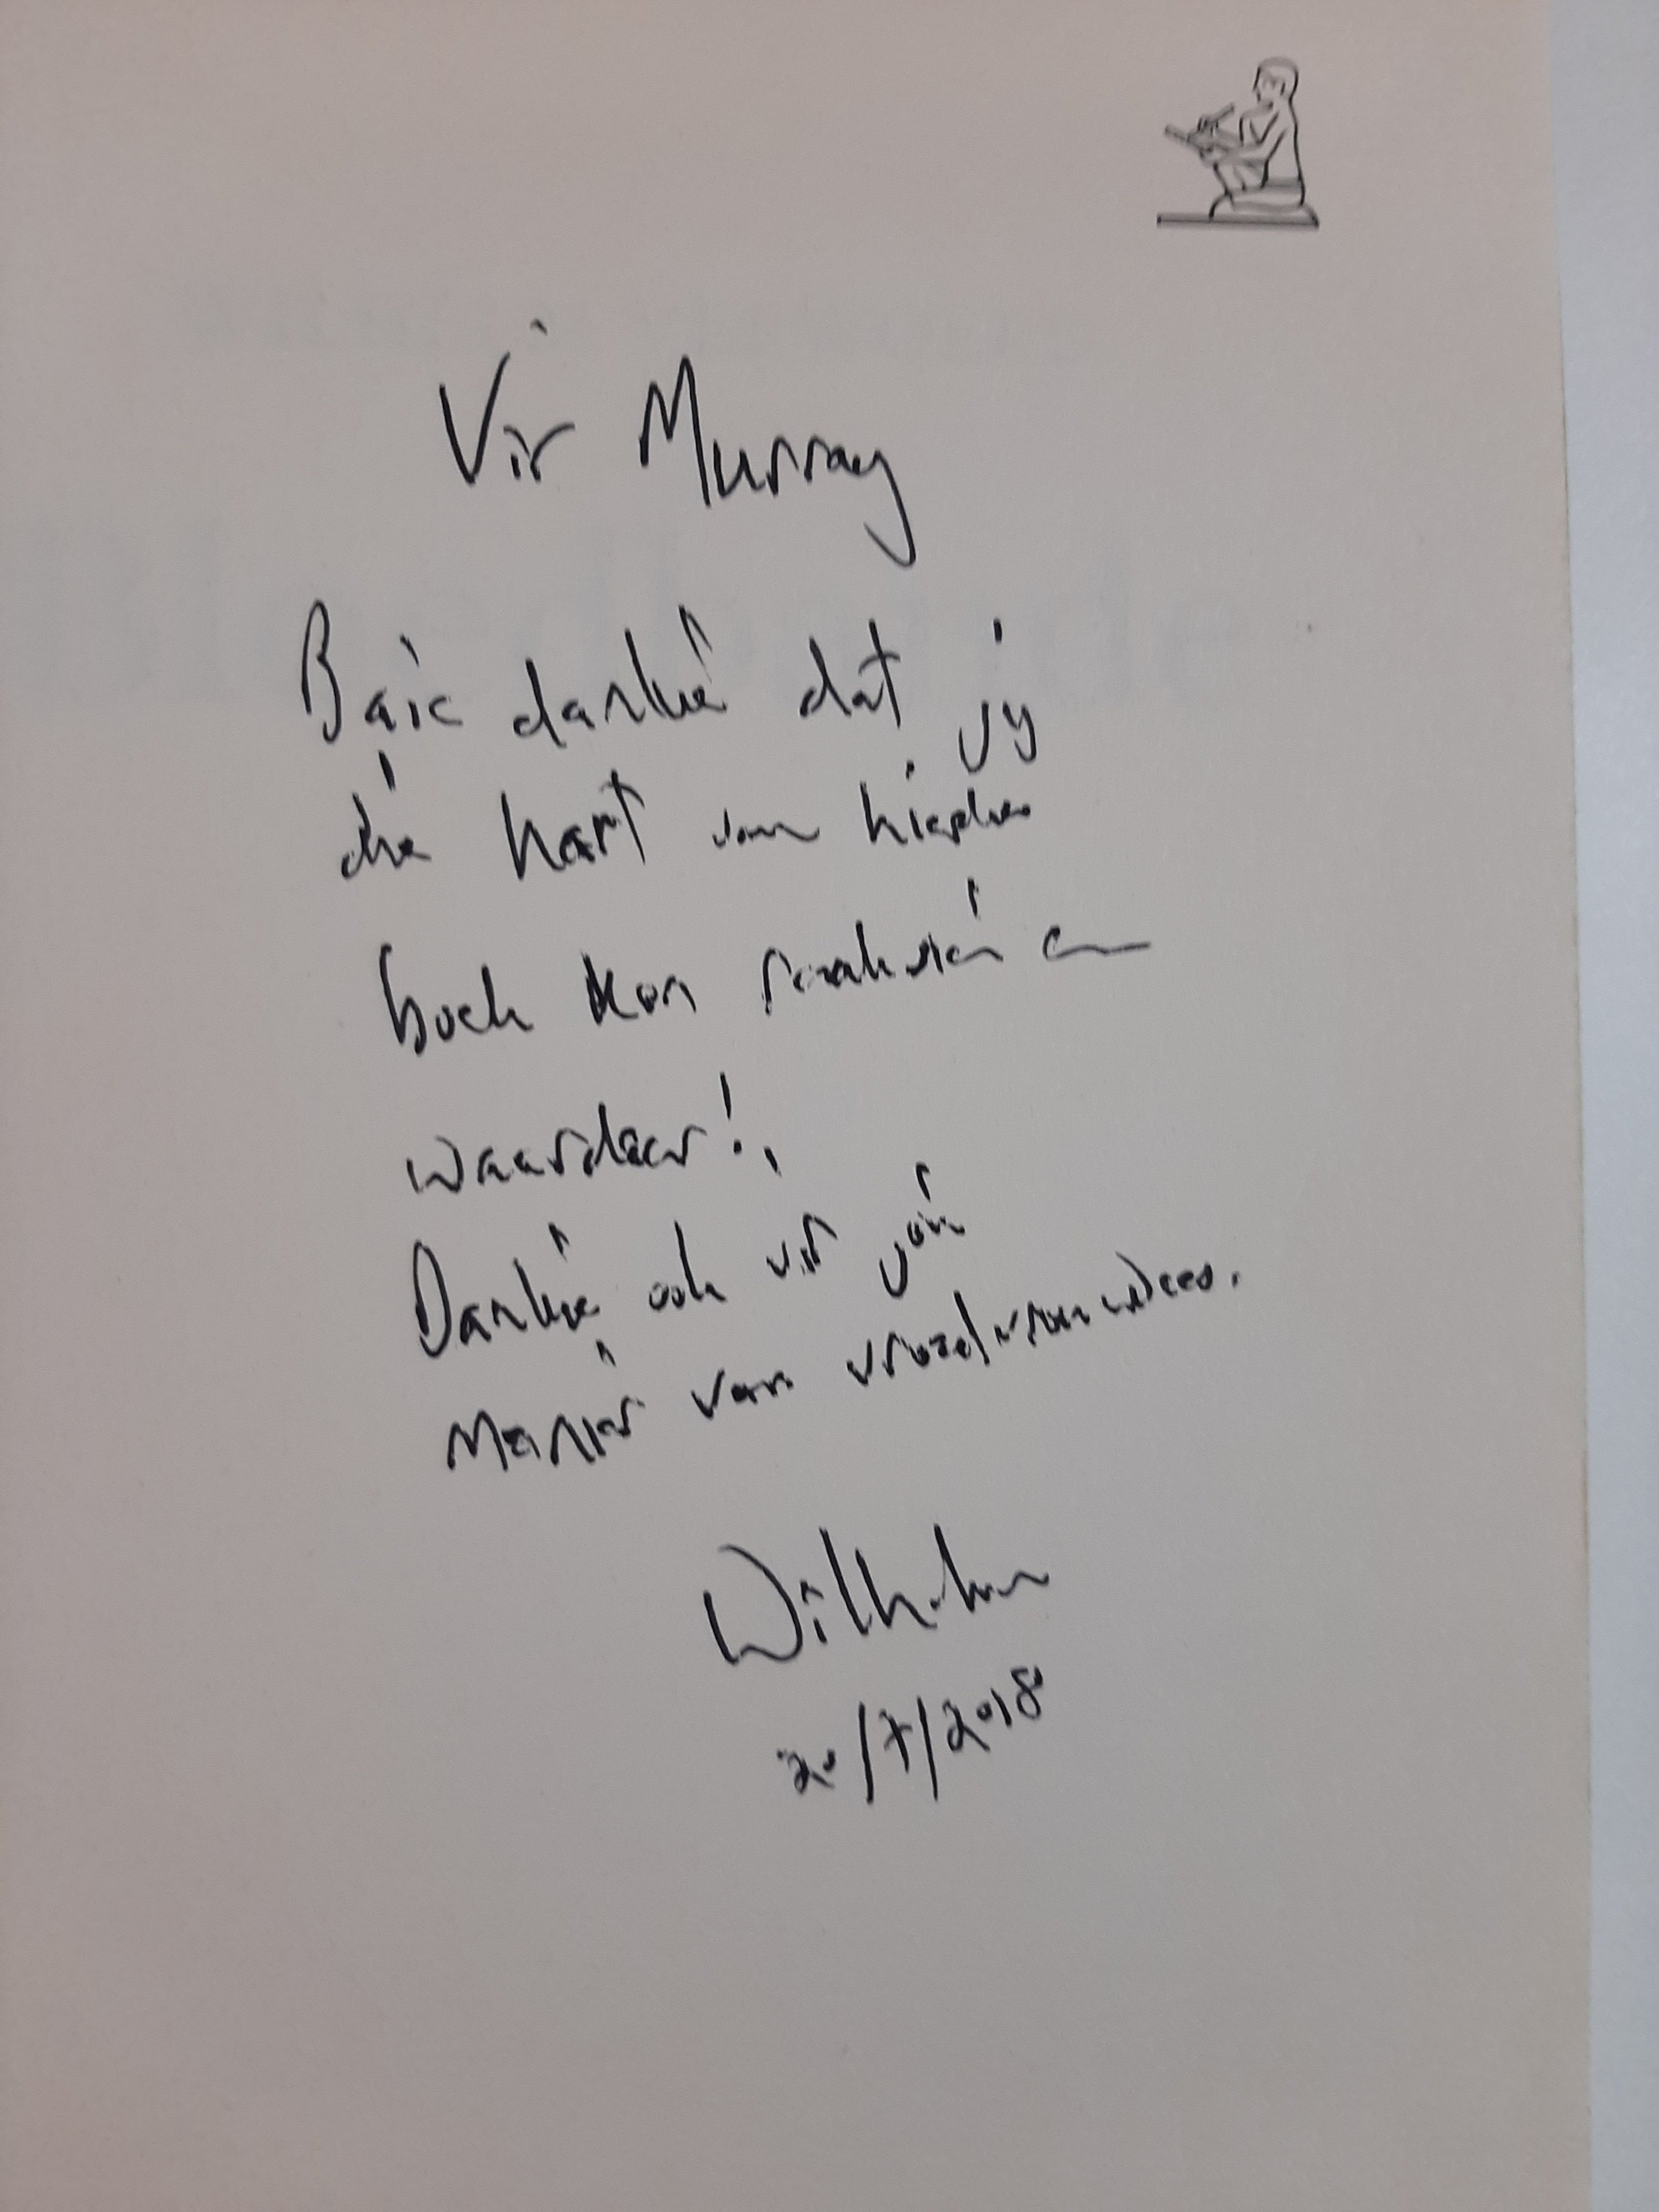 Vir Murray
Baie dankie dat jy
die hart van hierdie
boek kon raaksien en
waardeer!
Dankie ook vir jou
manier van vroedvrou wees.
Wilhelm
20/7/2018